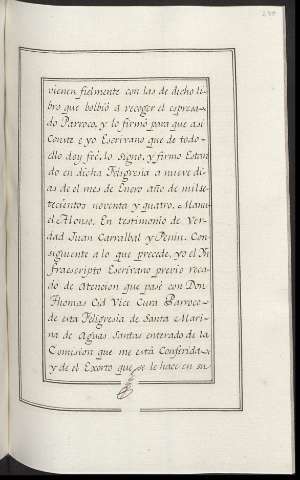 vienen fielmente con las de dicho li-
bro que bolbió á recoger el espresa-
do Parroco, y lo firmó para que asi
Conste e yo Escrivano que de todo-
ello doy feé, lo Signo, y firmo Estan
do en dicha Feligresia á nueve di-
as de el mes de Enero año de mil se-
tecientos noventa y quatro. Manu-
el Alonso. En testimonio de Ver-
dad Juan Carralbal y Penin. Con-
siguiente a lo que precede, yo el In
fraescripto Escrivano previo reca-
do de Atencion que pasé con Don
Thomas Cid Vice Cura Parroco-
de esta Feligresia de Santa Mari-
na de Aguas Santas enterado de la
Comision que me está Conferida
y de el Exorto que se le hace en su